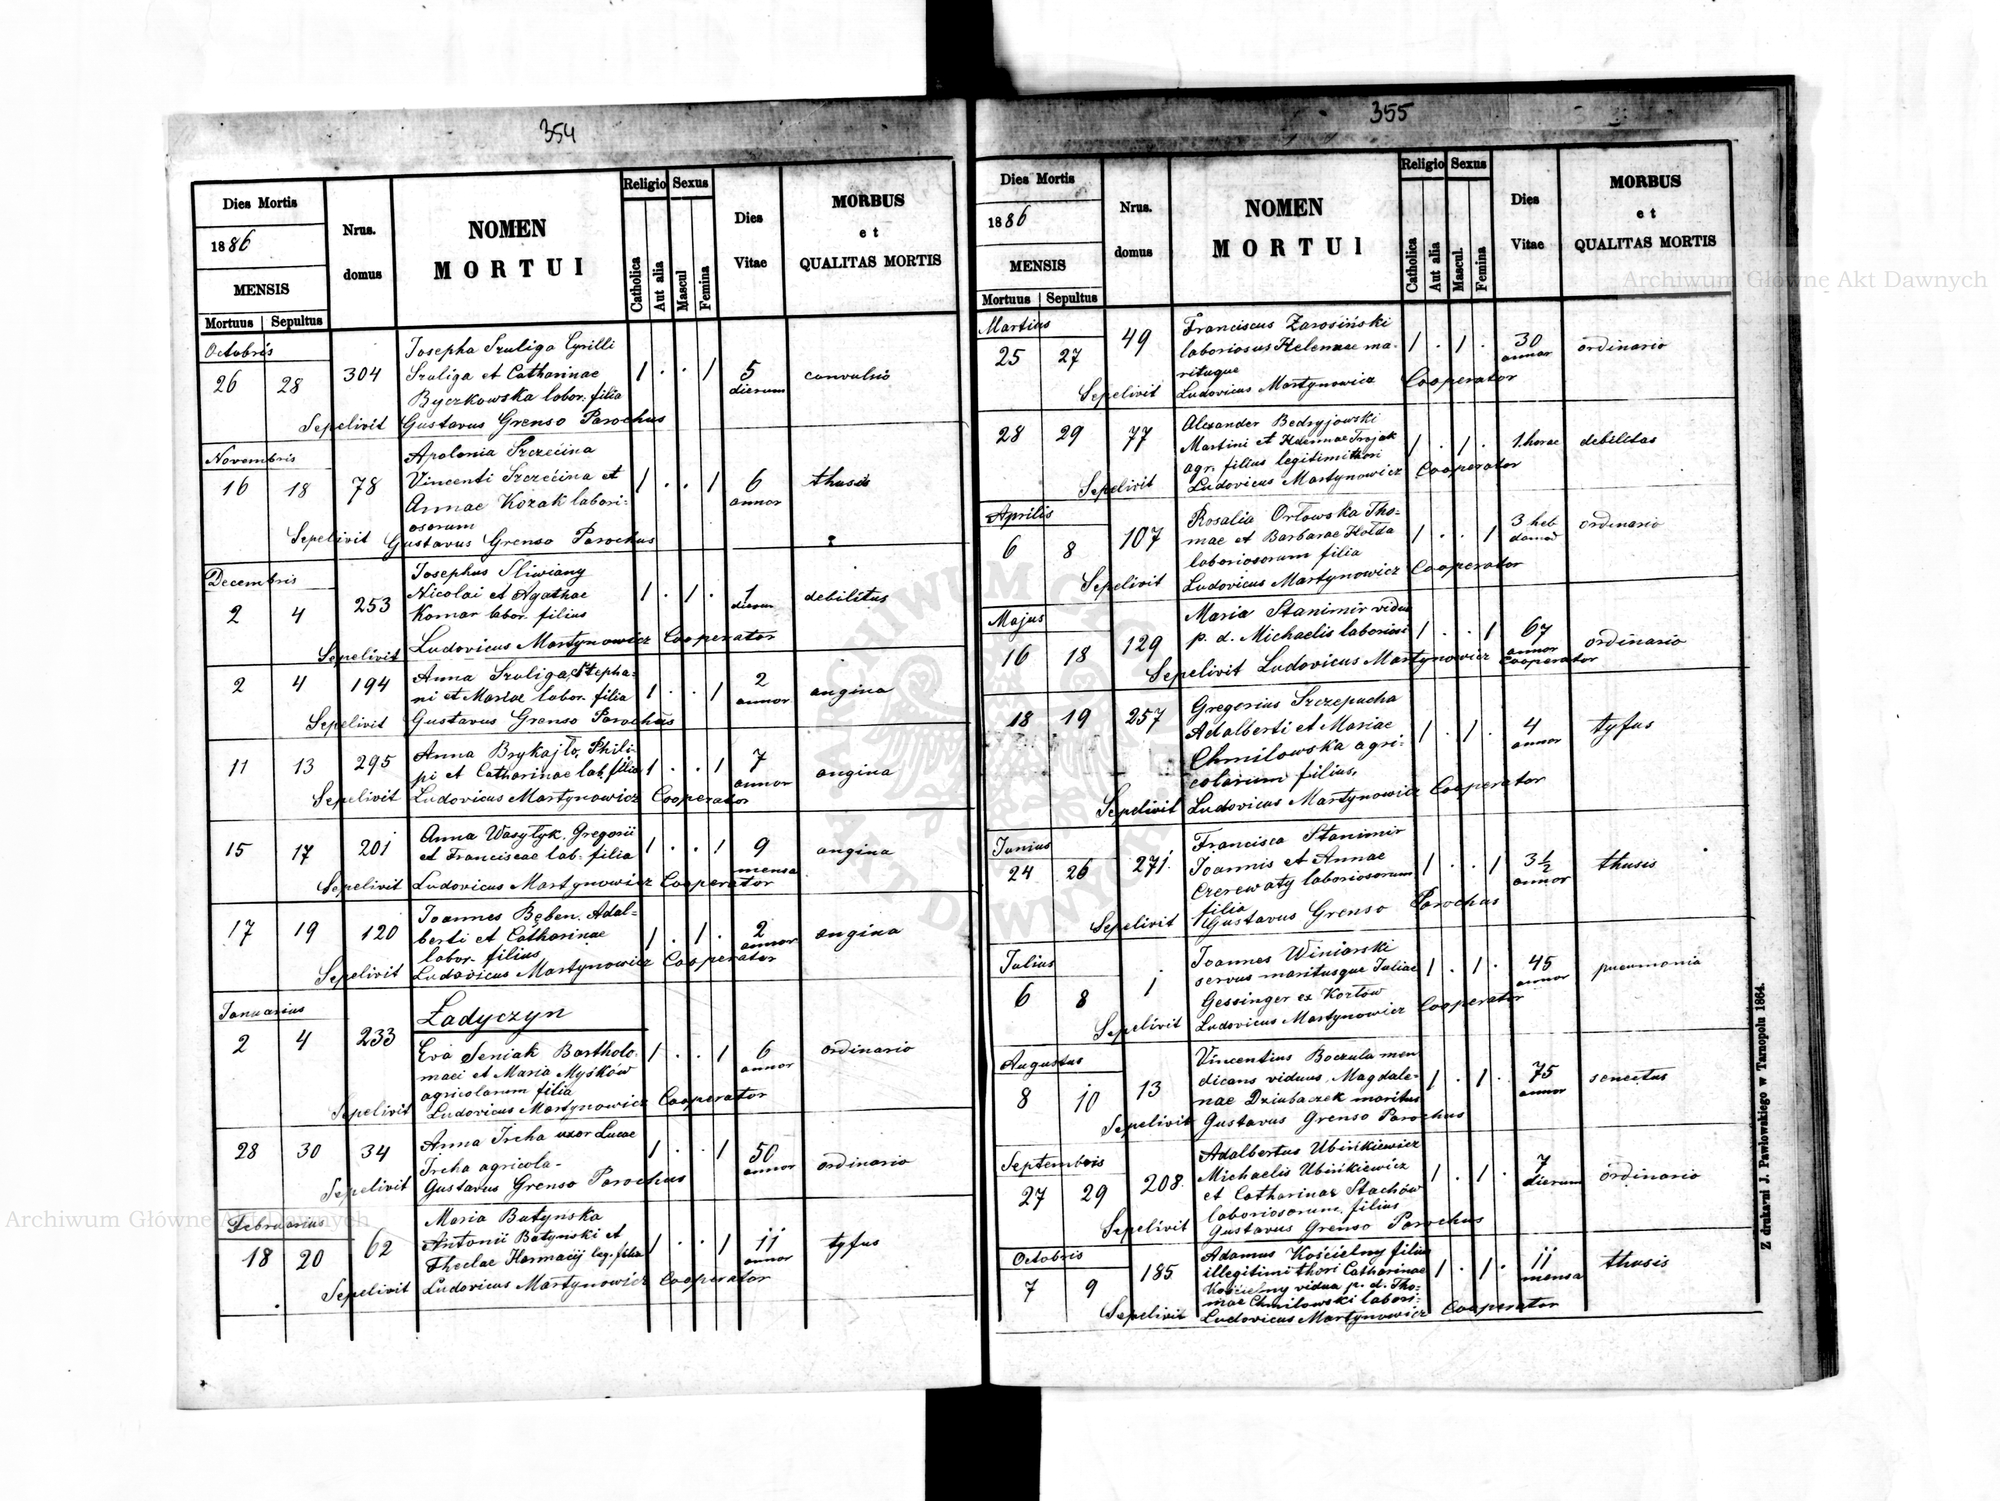 354
Dies Mortis
1886
MENSIS
Mortuus | Sepultus
Nrus.
domus
NOMEN
MORTUI
Religio
Catholica
Aut alia
Sexus
Mascul
Femina
Dies
Vitae
MORBUS
et
QUALITAS MORTIS
Octobris
26 28 304
Josepha Szuliga Cyrilli
Szuliga et Catharinae
Byczkowska labor. filia
1 . . 1
5
dierum
convulsio
Sepelivit Gustavus Grenso Parochus
Novembris
16 18 78
Apolonia Szczecina
Vincenti Szczecina et
Annae Kozak labori-
osorum
1 . . 1
6
annor
thusis
Sepelivit Gustavus Grenso Parochus
Decembris
2 4 253
Josephus Sliwiany
Nicolai et Agathae
Komar labor. filius
1 . 1 .
1
dierum
debilitus
Sepelivit Ludovicus Martynowicz Cooperator
2 4 194
Anna Szuliga, Stepha-
ni et Mariae labor. filia
1 . . 1
2
annor
angina
Sepelivit Gustavus Grenso Parochus
11 13 295
Anna Brykajło, Phili-
pi et Catharinae lab. filia
1 . . 1
7
annor
angina
Sepelivit Ludovicus Martynowicz Cooperator
15 17 201
Anna Wasyłyk, Gregorii
et Franciscae lab. filia
1 . . 1
9
mensa
angina
Sepelivit Ludovicus Martynowicz Cooperator
17 19 120
Joannes Bęben, Adal-
berti et Catharinae
labor. filius
1 . 1 .
2
annor
angina
Sepelivit Ludovicus Martynowicz Cooperator
Januarius
Ładyczyn
2 4 233
Eva Seniak Bartholo-
maei et Maria Myśków
agricolarum filia
1 . . 1
6
annor
ordinario
Sepelivit Ludovicus Martynowicz Cooperator
28 30 34
Anna Ircha uxor Lucae
Ircha agricola-
1 . . 1
50
annor
ordinario
Sepelivit Gustavus Grenso Parochus
Februarius
18 20 62
Maria Batyńska
Antonii Batynski et
Theclae Harmacij leg. filia
1 . . 1
11
annor
tyfus
Sepelivit Ludovicus Martynowicz Cooperator
355
Dies Mortis
1886
MENSIS
Mortuus | Sepultus
Nrus.
domus
NOMEN
MORTUI
Religio
Catholica
Aut alia
Sexus
Mascul.
Femina
Dies
Vitae
MORBUS
et
QUALITAS MORTIS
Martius
25 27 49
Franciscus Zarosiński
laboriosus Helennae ma-
ritusque
1 . 1 .
30
annor
ordinario
Sepelivit Ludovicus Martynowicz Cooperator
28 29 77
Alexander Bedryjowski
Martini et Helennae Trojak
agr. filius legitimi thori
1 . 1 .
1. horae
debilitas
Sepelivit Ludovicus Martynowicz Cooperator
Aprilis
6 8 107
Rosalia Orłowska Tho-
mae et Barbarae Hołda
laboriosorum filia
1 . . 1
3 heb
domad
ordinario
Sepelivit Ludovicus Martynowicz Cooperator
Majus
16 18 129
Maria Stanimir vidua
p. d. Michaelis laboriosi
1 . . 1
67
annor
ordinario
Sepelivit Ludovicus Martynowicz Cooperator
18 19 257
Gregorius Szczepucha
Adalberti et Mariae
Chmilowska agri-
colarum filius,
1 . 1 .
4
annor
tyfus
Sepelivit Ludovicus Martynowicz Cooperator
Junius
24 26 271.
Francisca Stanimir
Joannis et Annae
Czerewaty laboriosorum
filia
1 . . 1
3 1/2
annor
thusis
Sepelivit Gustavus Grenso Parochus
Julius
6 8 1
Joannes Winiarski
servus maritusque Juliae
Gessinger ex Kozłów
1 . 1 .
45
annor
pneumonia
Sepelivit Ludovicus Martynowicz Cooperator
Augustus
8 10 13
Vincentius Boczula men
dicans viduus, Magdale-
nae Dziubaczek maritus
1 . 1 .
75
annor
senectus
Sepelivit Gustavus Grenso Parochus
Septembris
27 29 208.
Adalbertus Ubińkiewicz
Michaelis Ubińkiewicz
et Catharinae Stachów
laboriosorum, filius
1 . 1 .
7
dierum
ordinario
Sepelivit Gustavus Grenso Parochus
Octobris
7 9 185
Adamus Kościelny filius
illegitimi thori Catharinae
Kościelny vidua p. d. Tho-
mae Chmilowski labori:
1 . 1 .
11
mensa
thusis
Sepelivit Ludovicus Martynowicz Cooperator
Z drukarni J. Pawłowskiego w Tarnopolu 1864.
Archiwum Główne Akt Dawnych
Archiwum Główne Akt Dawnych
ARCHIWUM GŁÓWNE AKT DAWNYCH